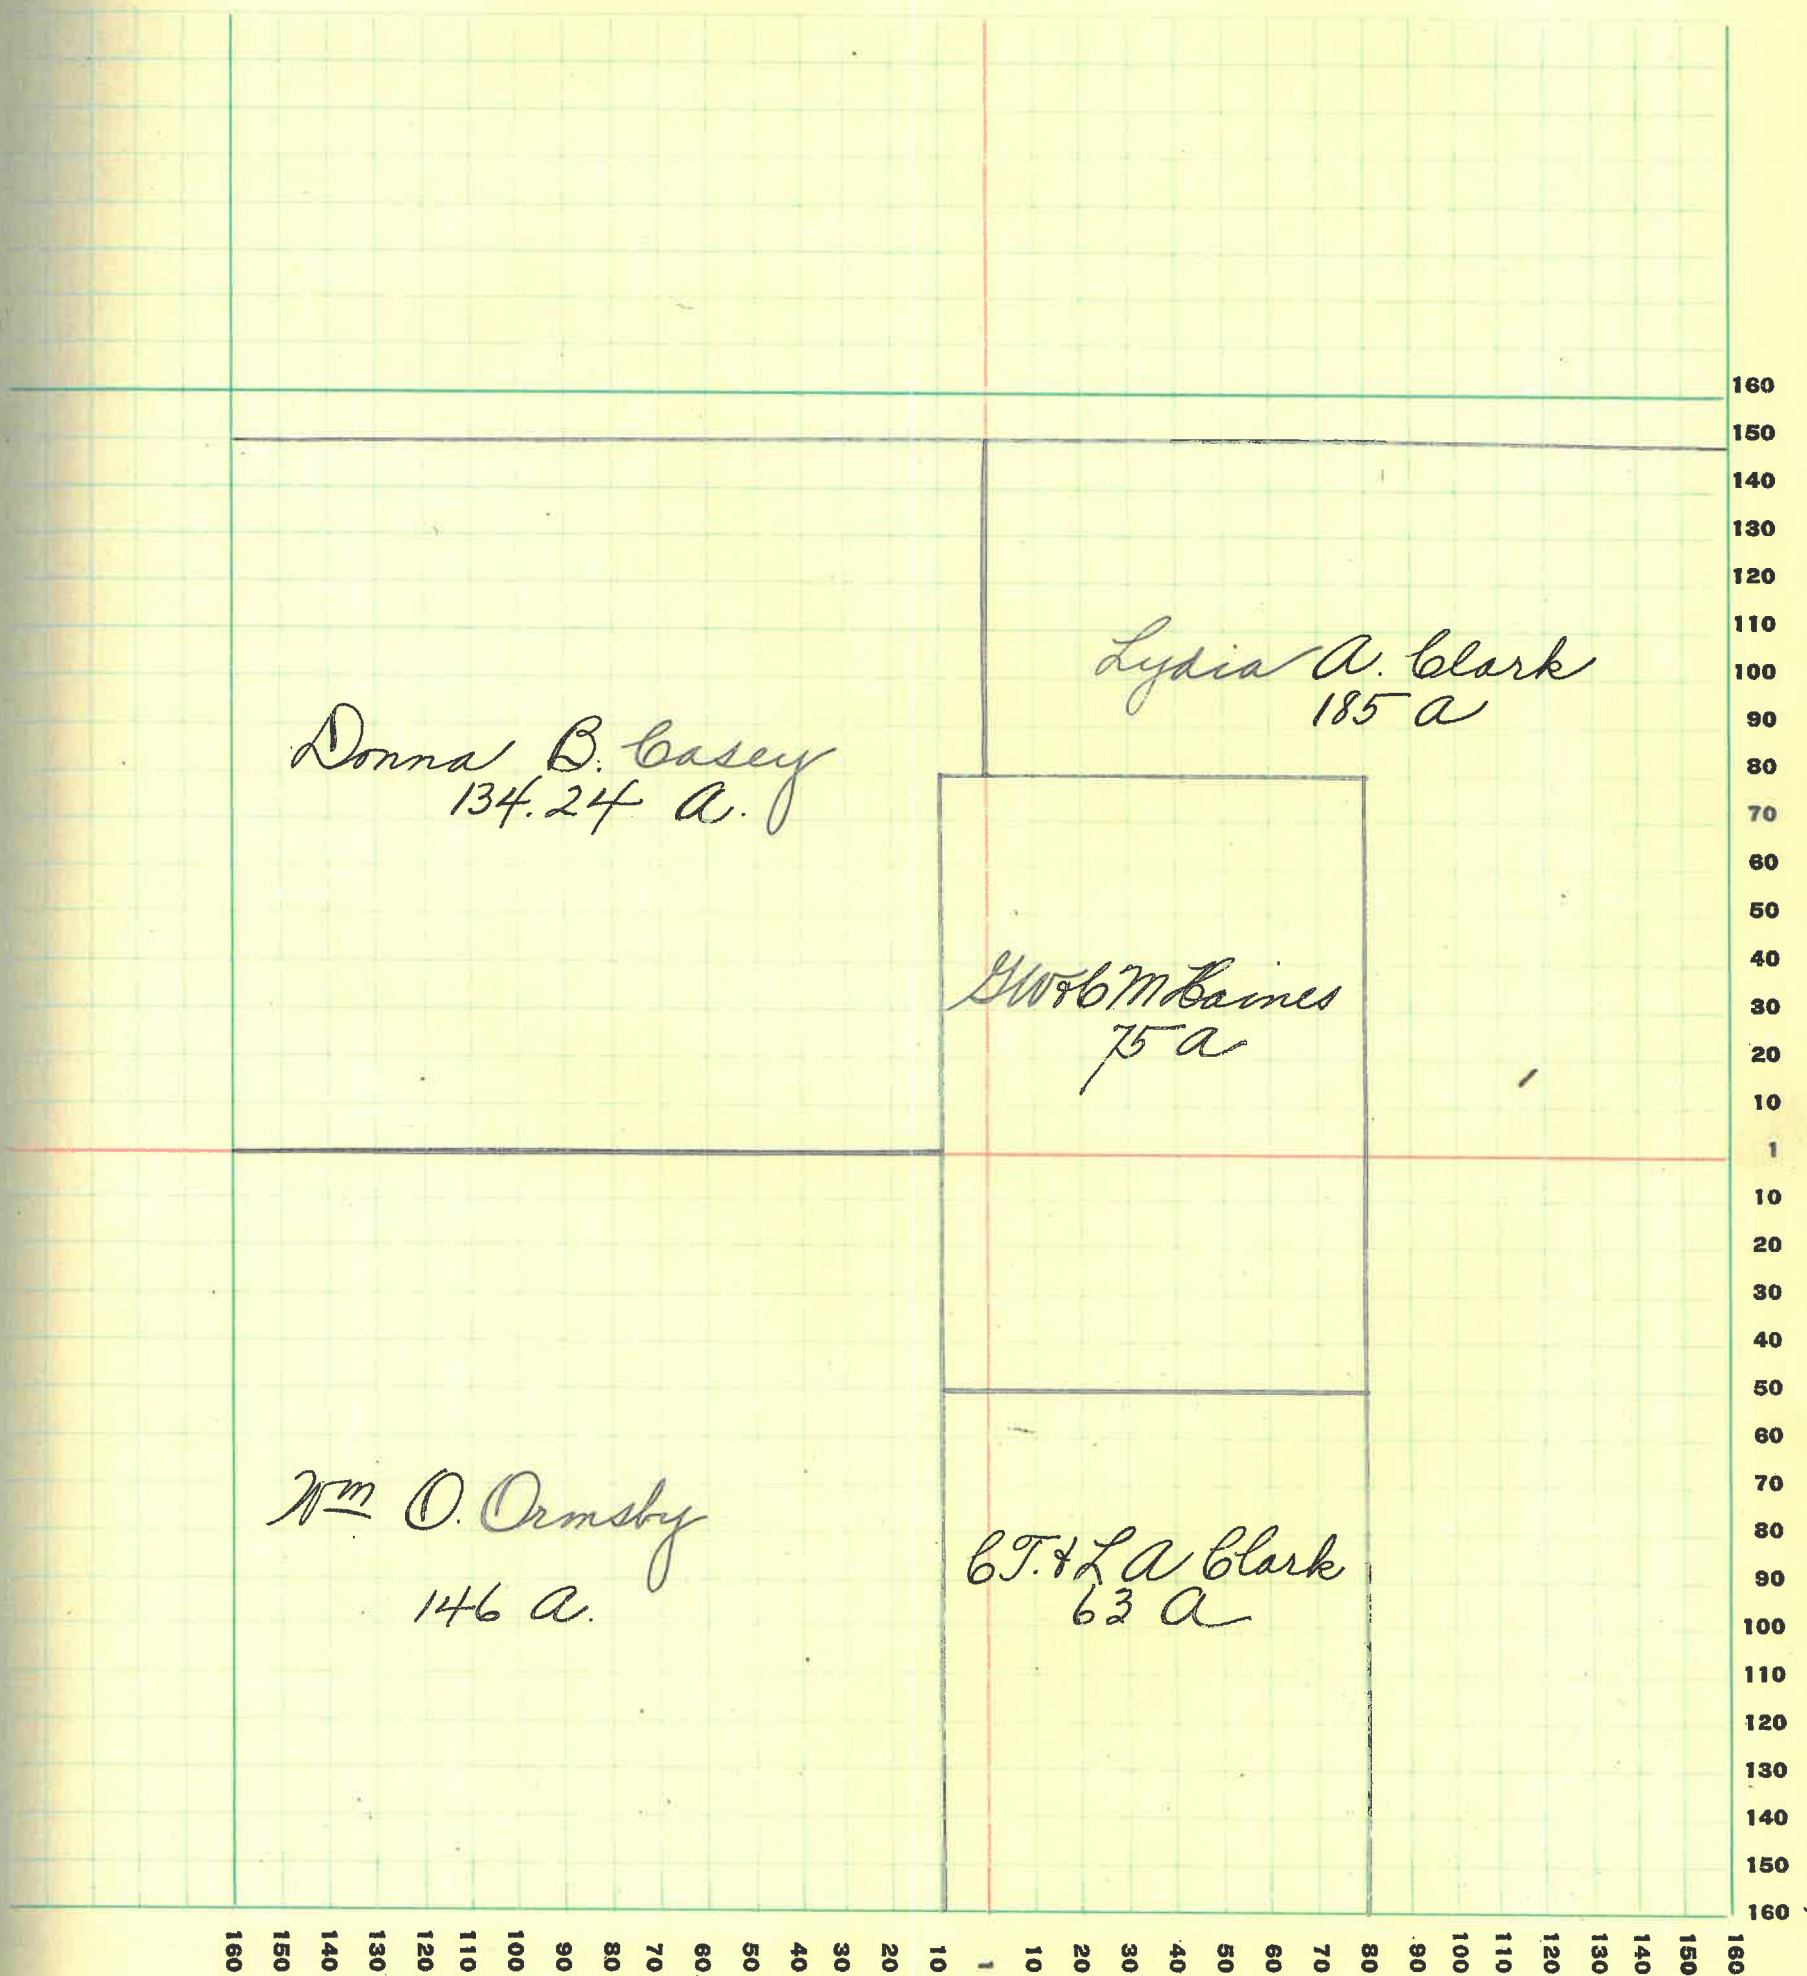 160
150
140
130
120
110
100
90
80
70
60
50
40
30
20
10
1
10
20
30
40
50
60
70
80
90
100
110
120
130
140
150
160
Lydia A. Clark
185 A
Donna B. Casey
134.24 A.
GW & C M Haines
75 A
Wm O. Ormsby
146 A.
C T. & L A Clark
63 A
160 150 140 130 120 110 100 90 80 70 60 50 40 30 20 10 1 10 20 30 40 50 60 70 80 90 100 110 120 130 140 150 160